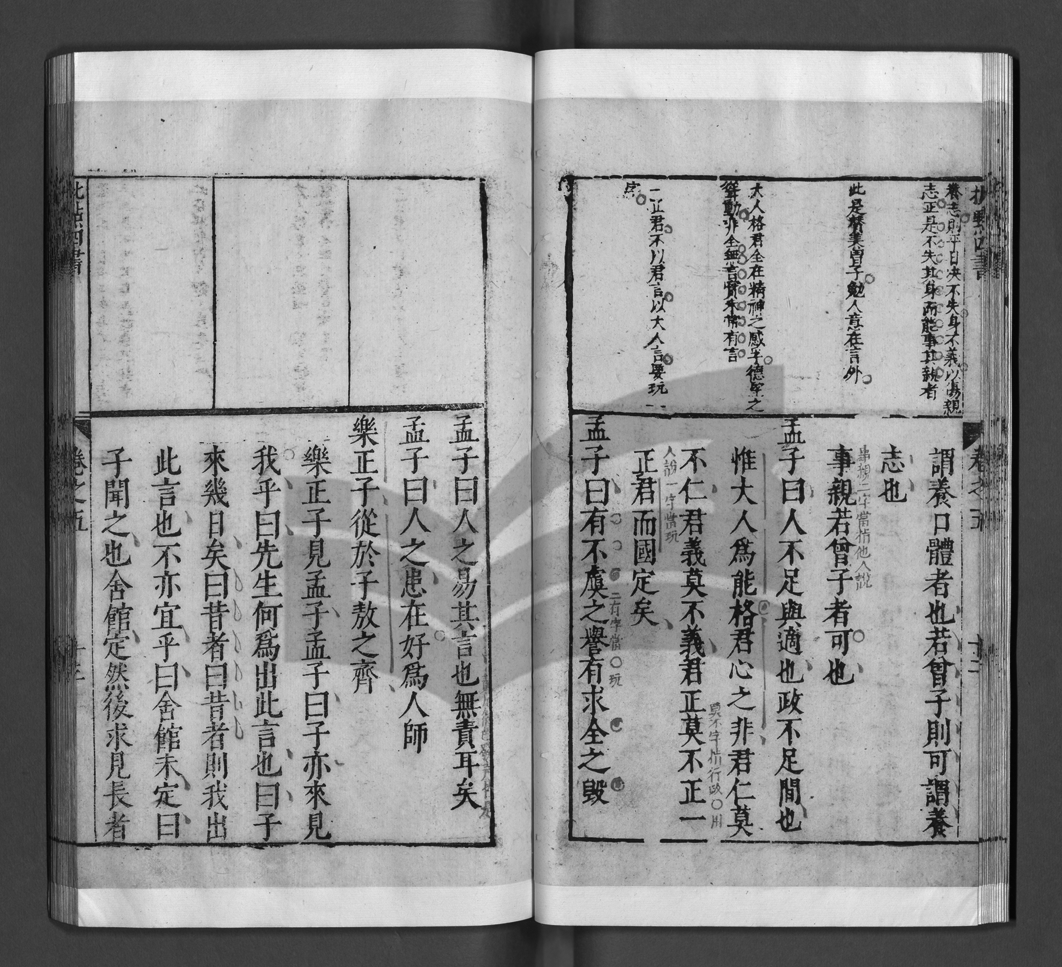 養志則平日决不失身不義以傷親
志正是不失其身而能事其親者
此是贊美曾子勉人意在言外
大人格君全在精神之感孚德望之
聳動非全無言責未嘗有言
一正君不以君言以大人言要玩一
謂養口體者也若曾子則可謂養
志也
事親若曾子者可也
孟子曰人不足與適也政不足間也
惟大人爲能格君心之非君仁莫
不仁君義莫不義君正莫不正一
正君而國定矣
孟子曰有不虞之譽有求全之毀
卷之五
孟子曰人之易其言也無責耳矣
孟子曰人之患在好爲人師
樂正子從於子敖之齊
樂正子見孟子孟子曰子亦來見
我乎曰先生何爲出此言也曰子
來幾日矣曰昔者曰昔者則我出
此言也不亦宜乎曰舍館未定曰
子聞之也舍館定然後求見長者
卷之五